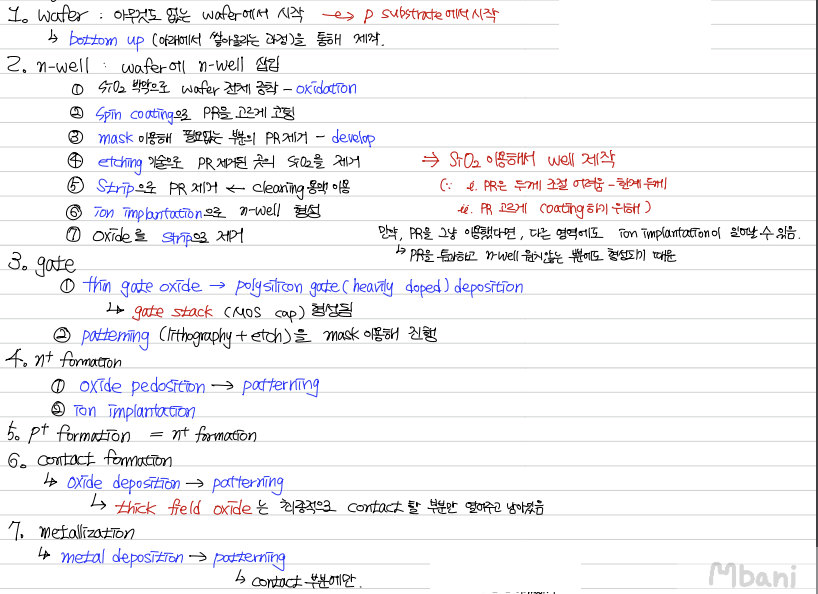 1. wafer : 아무것도 없는 wafer에서 시작 → p substrate에서 시작
↳ bottom up (아래에서 쌓아올리는 과정)을 통해 제작.
2. n-well : wafer에 n-well 삽입
① SiO2 박막으로 wafer 전체 증착 - oxidation
② spin coating으로 PR을 고르게 코팅
③ mask 이용해 필요없는 부분의 PR 제거 - develop
④ etching 기술으로 PR 제거된 곳의 SiO2를 제거 → SiO2 이용해서 well 제작
⑤ strip으로 PR 제거 ← cleaning 용액 이용 (∵ i. PR은 두께 조절 어려움 - 한계 두께
⑥ ion implantation으로 n-well 형성 ii. PR 고르게 coating하기 위해)
⑦ oxide를 strip으로 제거 만약, PR을 그냥 이용했다면, 다른 영역에도 ion implantation이 일어날 수 있음.
↳ PR을 투과하고 n-well 원치않는 부분에도 형성되기 때문
3. gate
① thin gate oxide → polysilicon gate (heavily doped) deposition
↳ gate stack (MOS cap) 형성됨
② patterning (lithography + etch)을 mask 이용해 진행
4. n+ formation
① oxide pedosition → patterning
② ion implantation
5. p+ formation = n+ formation
6. contact formation
↳ oxide deposition → patterning
↳ thick field oxide는 최종적으로 contact 할 부분만 열어주고 남아있음
7. metallization
↳ metal deposition → patterning
↳ contact 부분에만.
Mbani